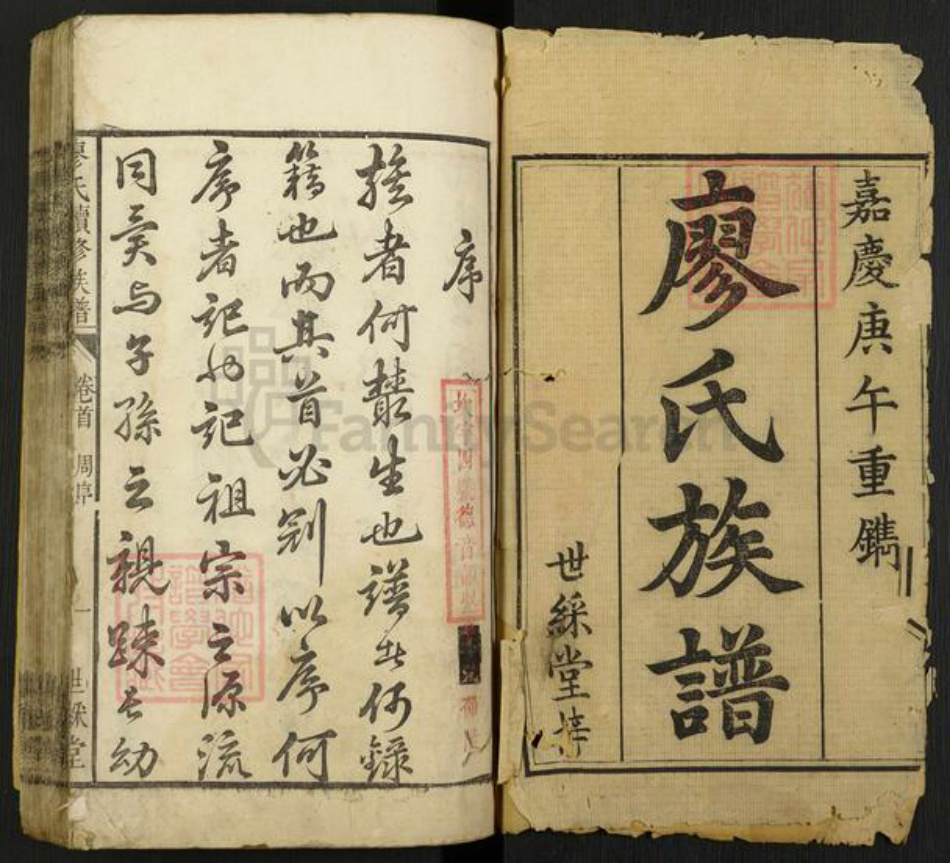 嘉慶庚午重鐫
廖氏族譜
世綵堂梓
序
族者何叢生也譜者何錄
籍也而其首必列以序何
序者記也記祖宗之源流
同異与子孫之親疎長幼
廖氏續修族譜
卷首
一
世綵堂
FamilySearch